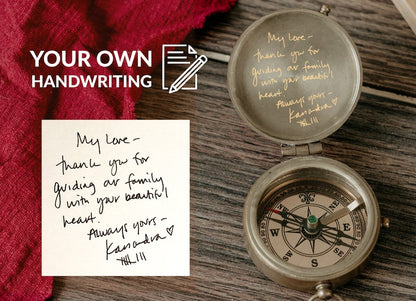 YOUR OWN
HANDWRITING
My Love –
thank you for
guiding our family
with your beautiful
heart.
Always yours –
Kasandra ♡
My Love –
thank you for
guiding our family
with your beautiful
heart.
Always yours –
Kasandra ♡
N
E
S
W